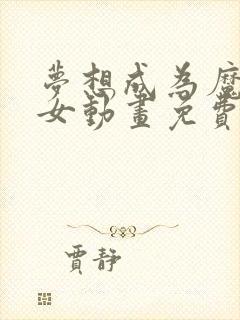 夢想成為魔
女動畫免費
賈靜